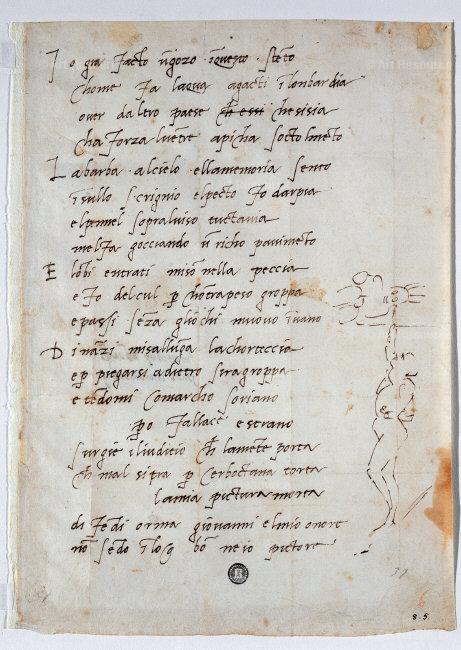 Art Resource
I o gia facto ūgozo īquesto stēto
chome fa lacqua agacti ī lonbardia
over daltro paese ch essi chesisia
cha forza lvētre apicha socto lmēto
L abarba alcielo ellamemoria sento
īsullo scrignio elpecto fo darpia
elpennel sopraluiso tuctavia
melfa gocciando ū richo pavimēto
E lōbi entrati miso nella peccia
e fo delcul p chōtrapeso groppa
epassi sēza gliochi muovo īvano
D ināzi misallūga lachorteccia
ep piegarsi adietro siragroppa
e tēdomi comarcho soriano
po fallace e strano
surgie iliuditio ch lamēte porta
ch mal sipra p cerboctana torta
lamia pictura morta
difedi orma giovanni elmio onore
nō sēdo ī loco bō ne io pictore
8.5.